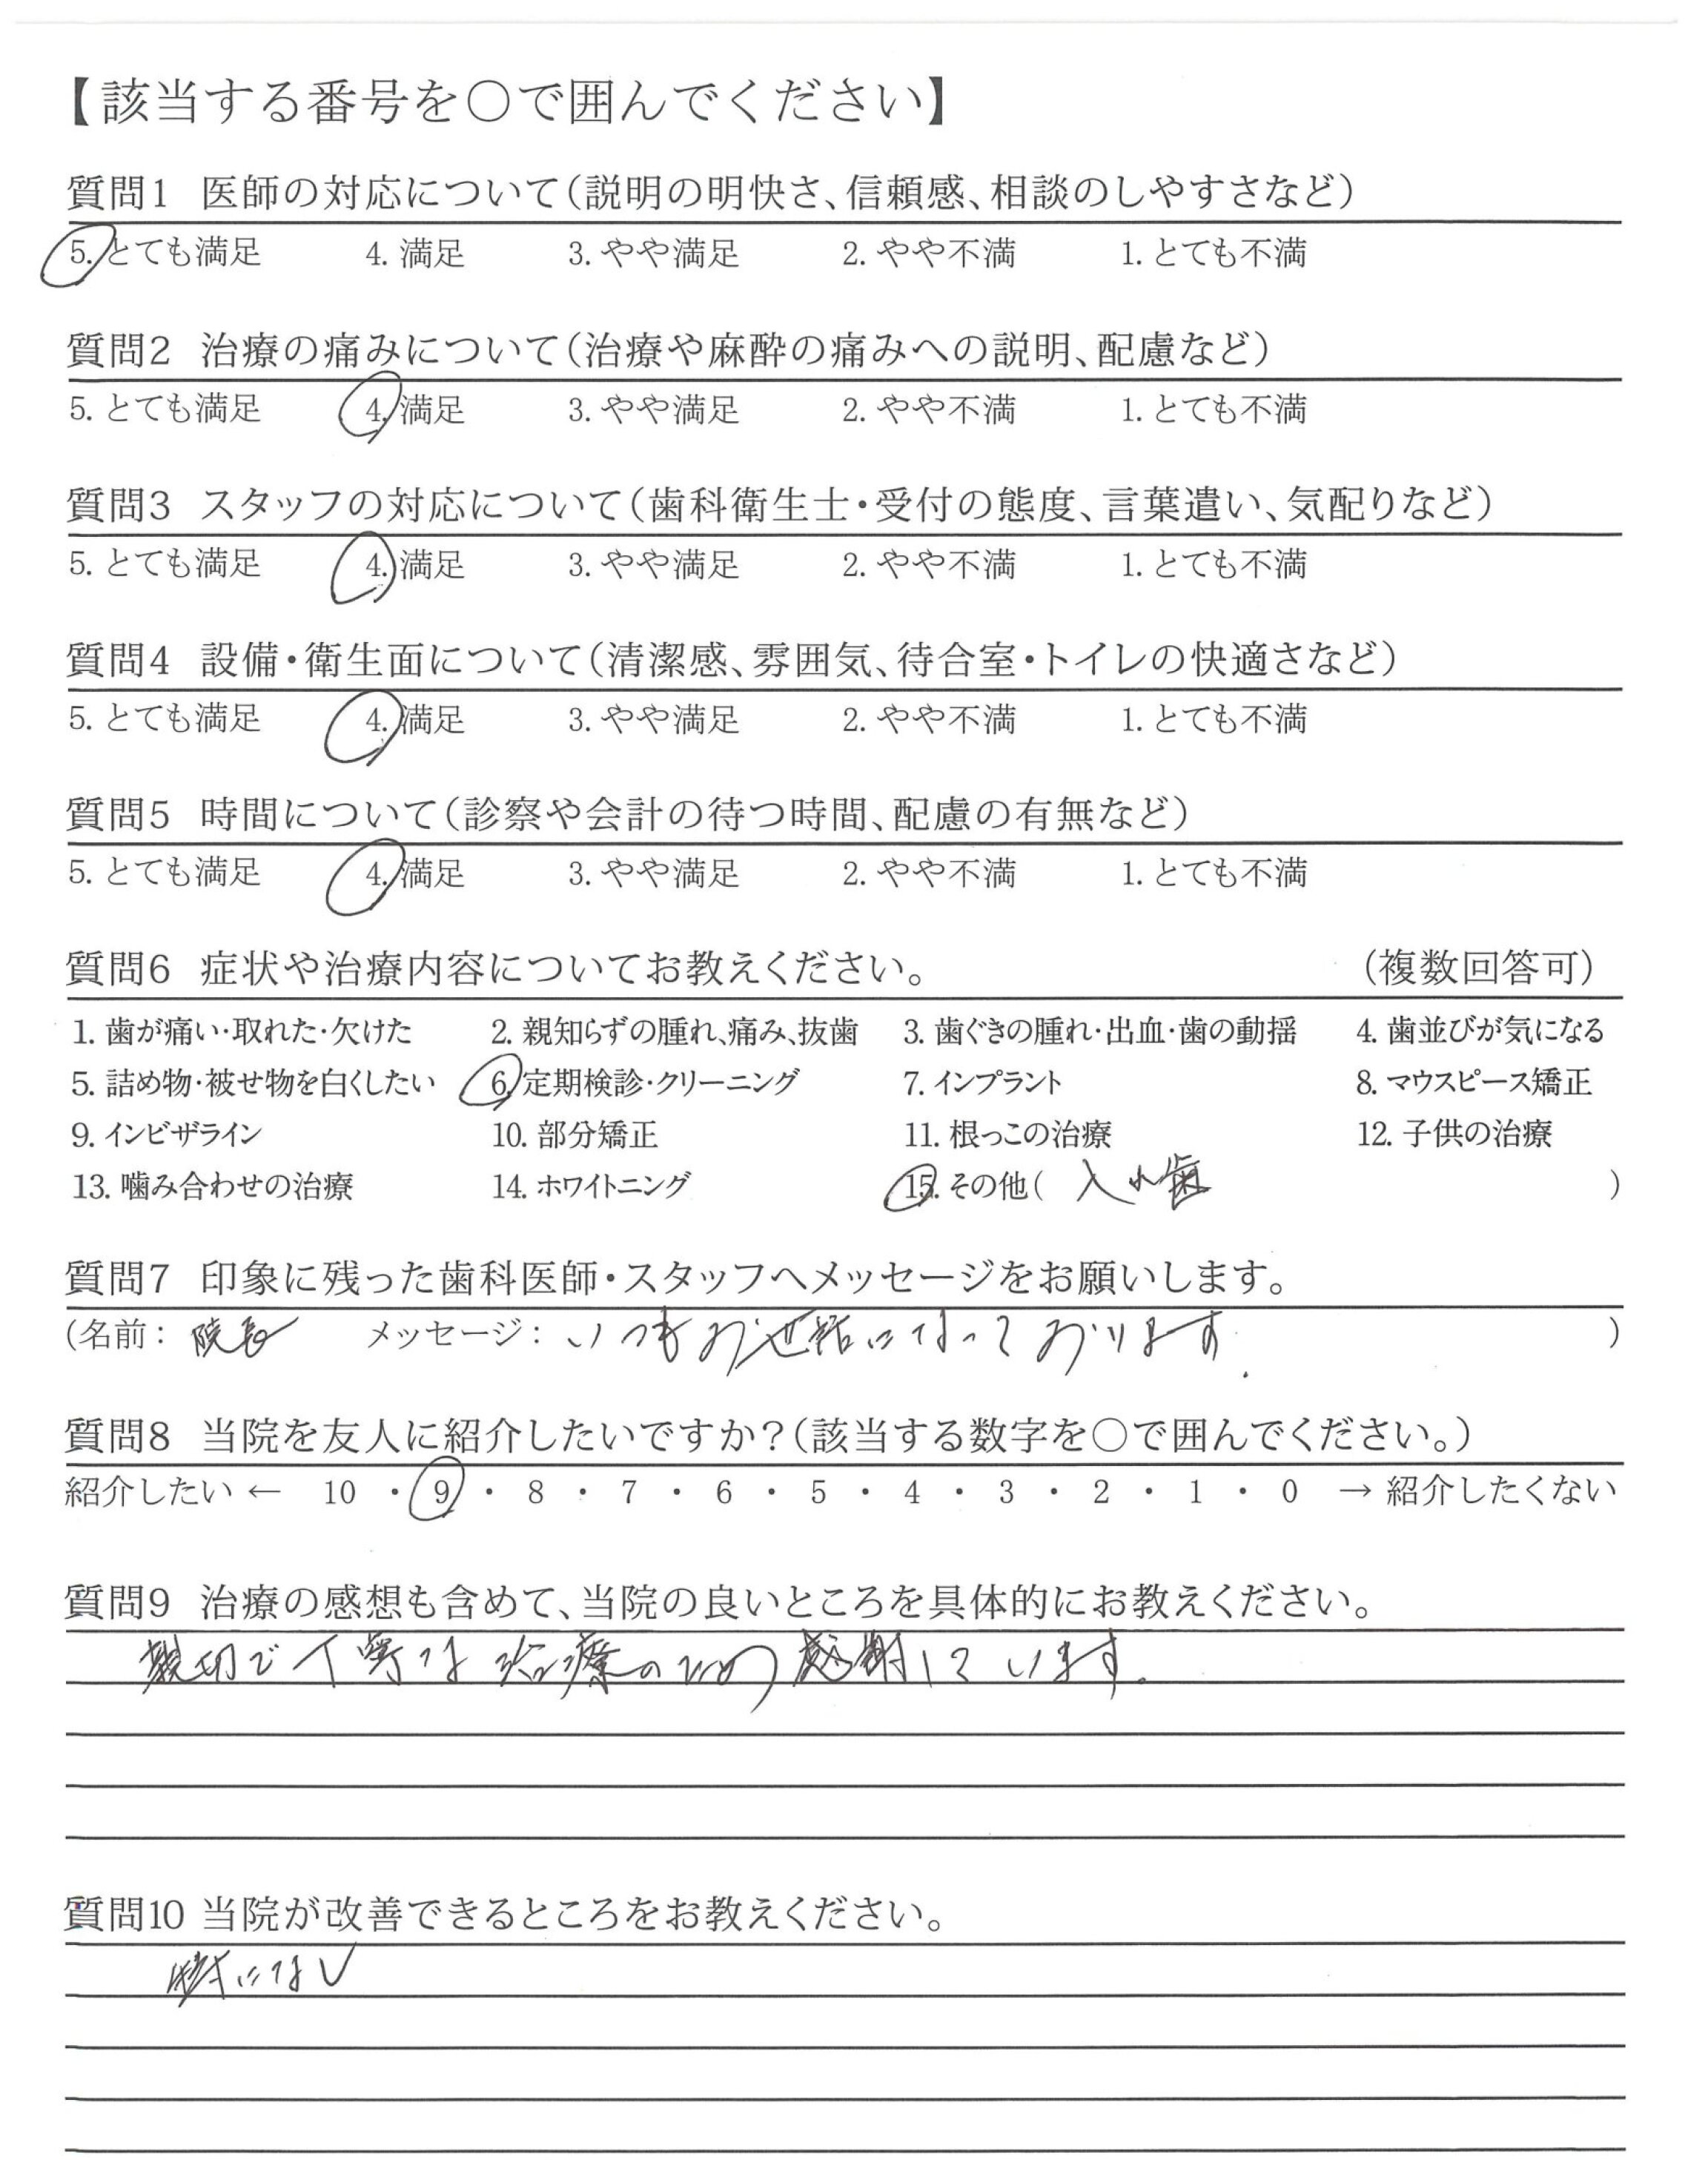 【該当する番号を○で囲んでください】
質問1 医師の対応について(説明の明快さ、信頼感、相談のしやすさなど)
5. とても満足 4. 満足 3. やや満足 2. やや不満 1. とても不満
質問2 治療の痛みについて(治療や麻酔の痛みへの説明、配慮など)
5. とても満足 4. 満足 3. やや満足 2. やや不満 1. とても不満
質問3 スタッフの対応について(歯科衛生士・受付の態度、言葉遣い、気配りなど)
5. とても満足 4. 満足 3. やや満足 2. やや不満 1. とても不満
質問4 設備・衛生面について(清潔感、雰囲気、待合室・トイレの快適さなど)
5. とても満足 4. 満足 3. やや満足 2. やや不満 1. とても不満
質問5 時間について(診察や会計の待つ時間、配慮の有無など)
5. とても満足 4. 満足 3. やや満足 2. やや不満 1. とても不満
質問6 症状や治療内容についてお教えください。 (複数回答可)
1. 歯が痛い・取れた・欠けた 2. 親知らずの腫れ、痛み、抜歯 3. 歯ぐきの腫れ・出血・歯の動揺 4. 歯並びが気になる
5. 詰め物・被せ物を白くしたい 6. 定期検診・クリーニング 7. インプラント 8. マウスピース矯正
9. インビザライン 10. 部分矯正 11. 根っこの治療 12. 子供の治療
13. 噛み合わせの治療 14. ホワイトニング 15. その他( 入れ歯 )
質問7 印象に残った歯科医師・スタッフへメッセージをお願いします。
(名前: 院長 メッセージ: いつもお世話になっております. )
質問8 当院を友人に紹介したいですか?(該当する数字を○で囲んでください。)
紹介したい ← 10 ・ 9 ・ 8 ・ 7 ・ 6 ・ 5 ・ 4 ・ 3 ・ 2 ・ 1 ・ 0 → 紹介したくない
質問9 治療の感想も含めて、当院の良いところを具体的にお教えください。
親切で丁寧な治療のため感謝しています.
質問10 当院が改善できるところをお教えください。
特になし